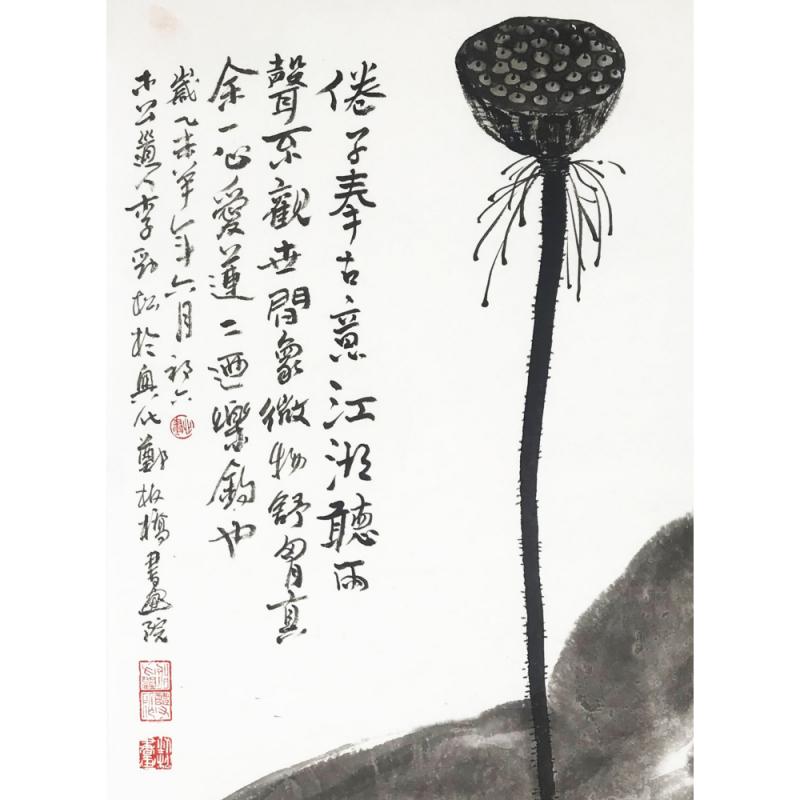 倦子奉古意江湖聽雨
聲不觀世間象微物舒胷真
余一心愛蓮二迺樂鈞也
歲乙未羊年六月初六
木公道人李勁松於興化鄭板橋書畫院